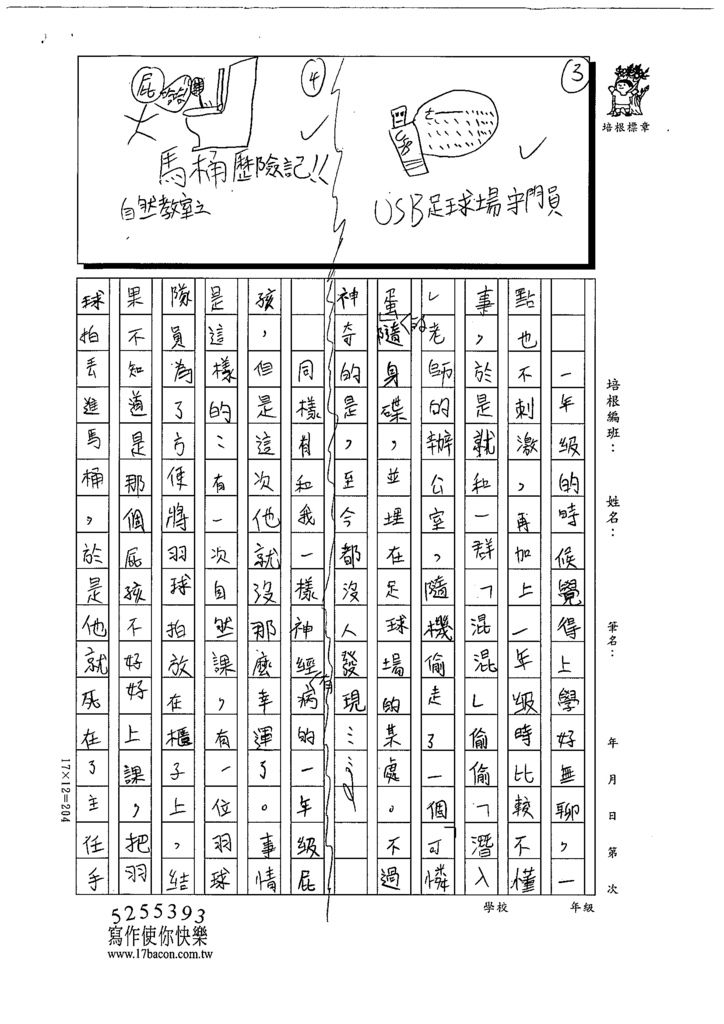 ③
USB足球場守門員
④
屁
哈哈
馬桶歷險記!!
自然教室之
培根標章
培根編班：
姓名：
筆名：
年 月 日 第 次
學校
年級
一年級的時候覺得上學好無聊，一
點也不刺激，再加上一年級時比較不懂
事，於是就和一群「混混」偷偷「潛入
」老師的辦公室，隨機偷走了一個「可憐
蛋」的隨身碟，並埋在足球場的某處。不過
神奇的是，至今都沒人發現……
同樣有和我一樣有神經病的一年級屁
孩，但是這次他就沒那麼幸運了。事情
是這樣的：有一次自然課，有一位羽球
隊員為了方便將羽球拍放在櫃子上，結
果不知道是那個屁孩不好好上課，把羽
球拍丟進馬桶，於是他就死在了主任手
17×12=204
5255393
寫作使你快樂
www.17bacon.com.tw